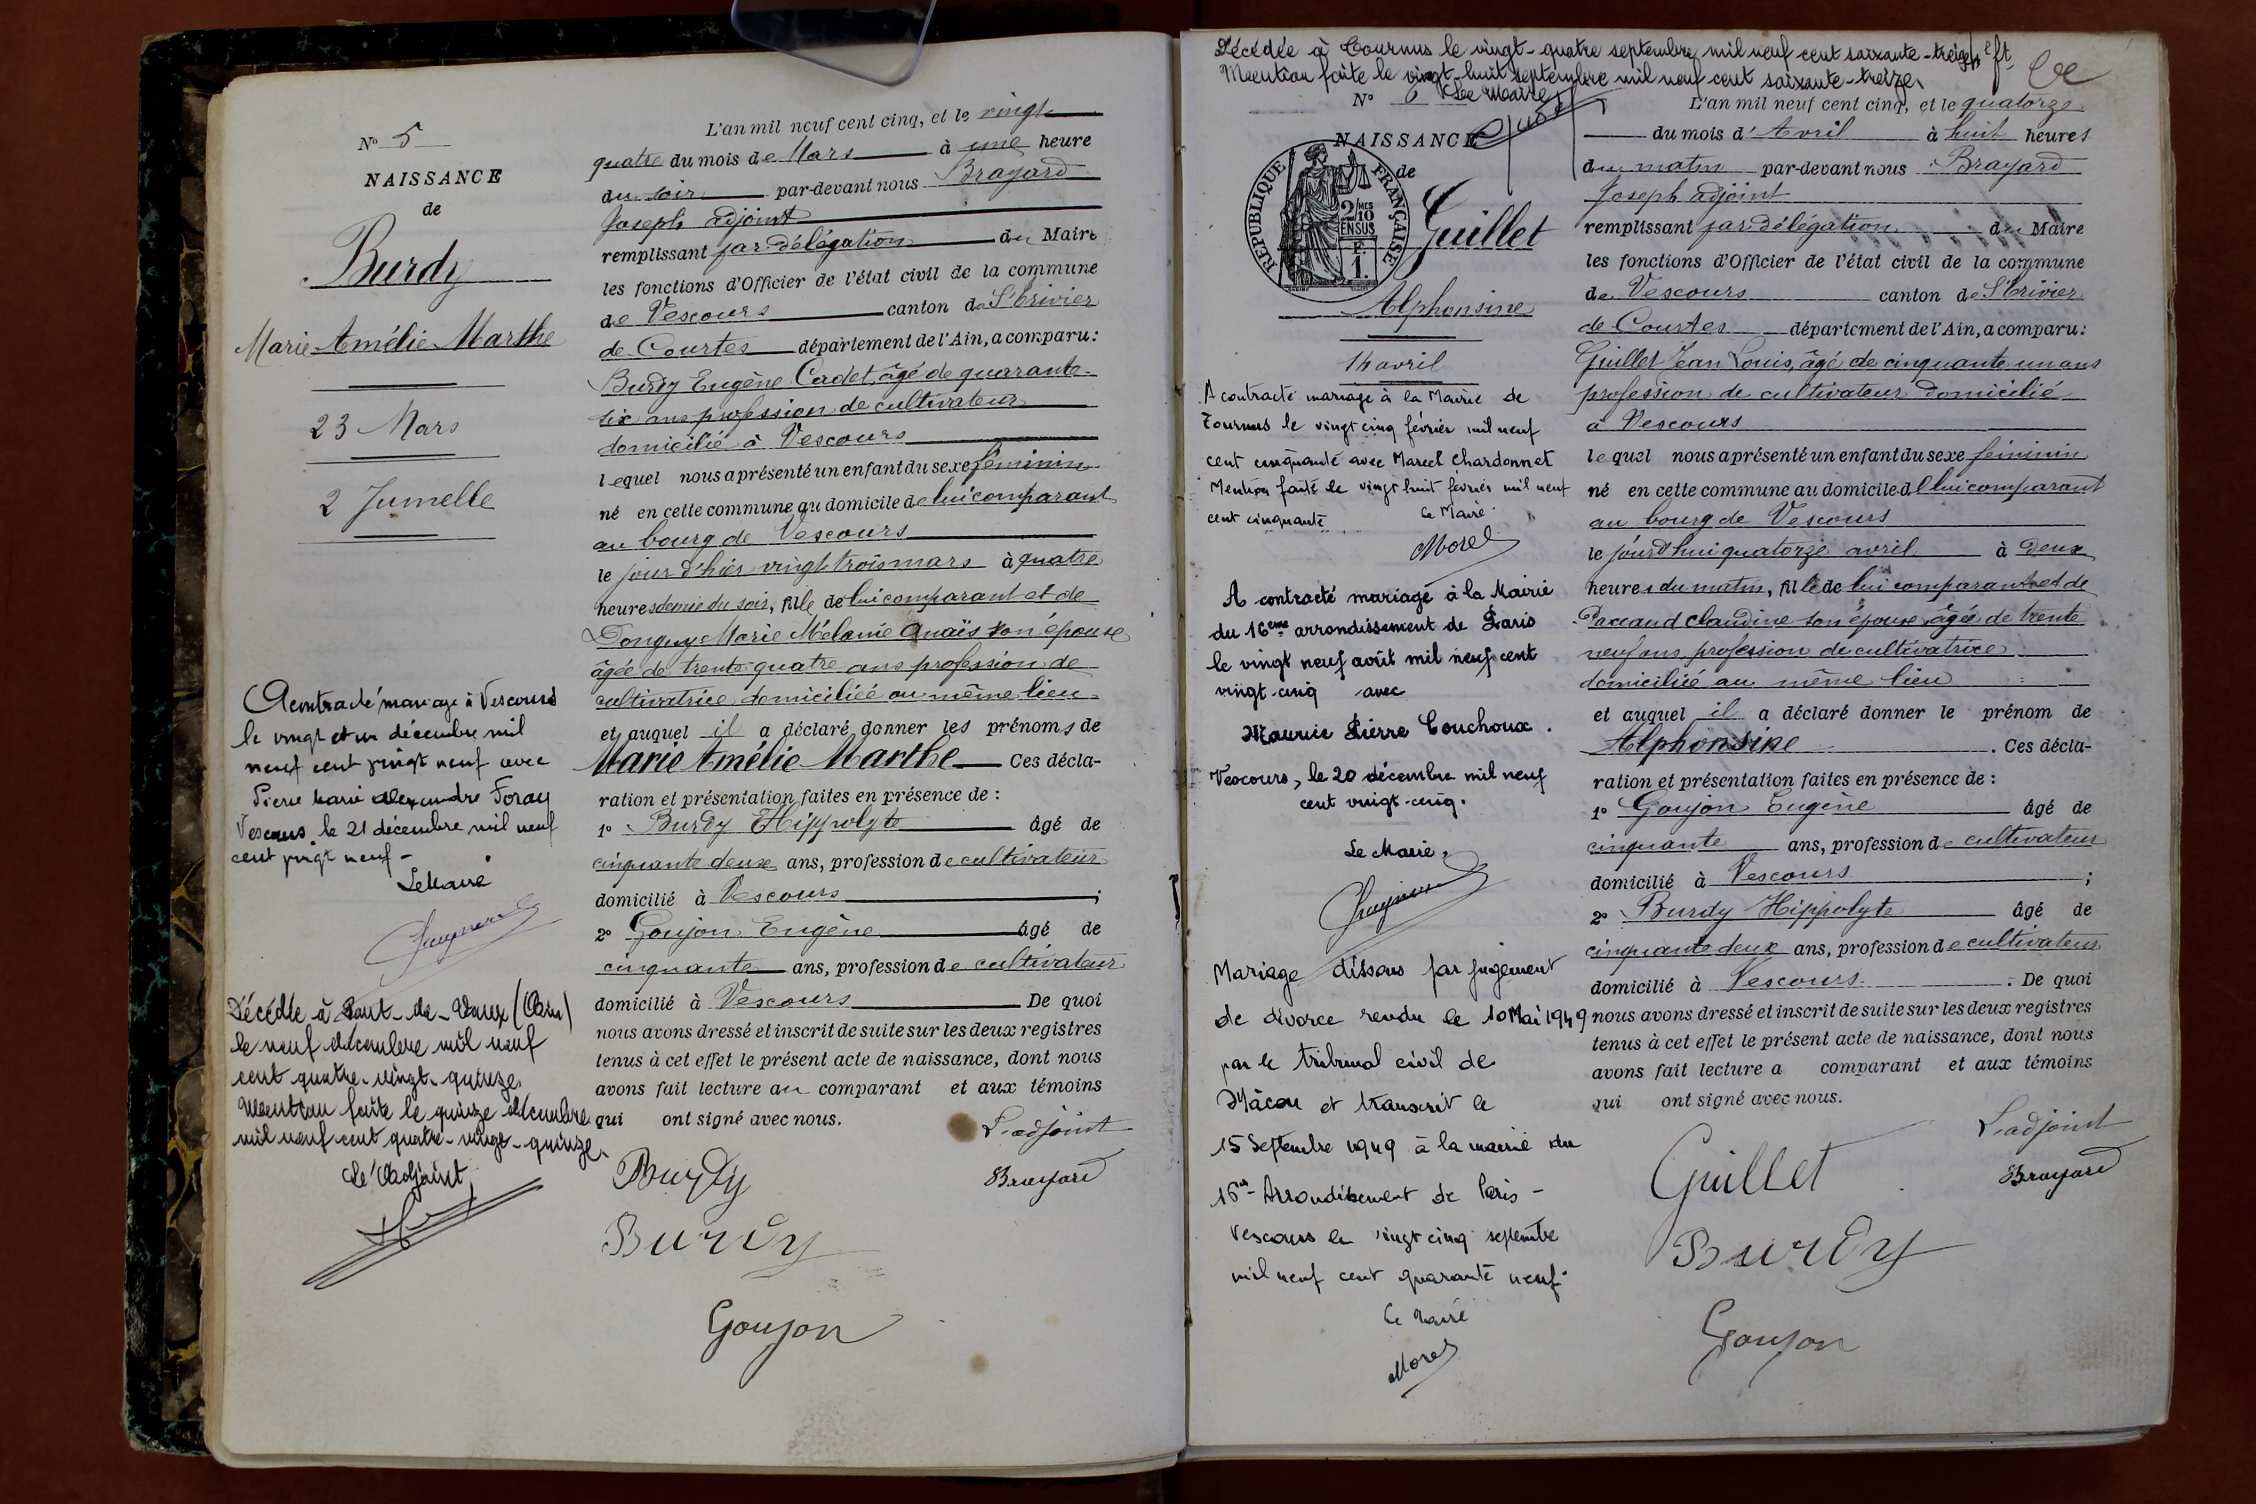 N° 5
NAISSANCE
de
Burdy
Marie Amélie Marthe
23 Mars
2 Jumelle
A contracté mariage à Vescours
le vingt et un décembre mil
neuf cent vingt neuf avec
Pierre Marie Alexandre Foray
Vescours le 21 décembre mil neuf
cent vingt neuf -
Le Maire
Décédée à Pont-de-Vaux (Ain)
le neuf décembre mil neuf
cent quatre-vingt-quinze.
Mention faite le quinze décembre
mil neuf cent quatre-vingt-quinze.
Le l'Adjoint,
L'an mil neuf cent cinq, et le vingt
quatre du mois de Mars à une heure
du soir par-devant nous Brayard
Joseph adjoint
remplissant par délégation du Maire
les fonctions d'Officier de l'état civil de la commune
de Vescours canton de St Trivier
de Courtes département de l'Ain, a comparu:
Burdy Eugène Cadet, âgé de quarante
six ans profession de cultivateur
domicilié à Vescours
lequel nous a présenté un enfant du sexe féminin
né en cette commune au domicile de lui comparant
au bourg de Vescours
le jour d'hier vingt trois mars à quatre
heures demie du soir, fille de lui comparant et de
Donguy Marie Mélanie Anaïs son épouse
âgée de trente quatre ans profession de
cultivatrice domiciliée au même lieu
et auquel il a déclaré donner les prénoms de
Marie Amélie Marthe Ces décla-
ration et présentation faites en présence de :
1° Burdy Hippolyte âgé de
cinquante deux ans, profession de cultivateur
domicilié à Vescours ;
2° Goujon Eugène âgé de
cinquante ans, profession de cultivateur
domicilié à Vescours De quoi
nous avons dressé et inscrit de suite sur les deux registres
tenus à cet effet le présent acte de naissance, dont nous
avons fait lecture au comparant et aux témoins
qui ont signé avec nous.
L'adjoint
Burdy
Brayard
Burdy
Goujon
Décédée à Tournus le vingt-quatre septembre mil neuf cent soixante-treize
Mention faite le vingt-huit septembre mil neuf cent soixante-treize.
Le Maire,
N° 6
NAISSANCE
de
RÉPUBLIQUE FRANÇAISE
2/10
EN SUS
F.
1.
Guillet
Alphonsine
14 avril
A contracté mariage à la Mairie de
Tournus le vingt cinq février mil neuf
cent cinquante avec Marcel Chardonnet
Mention faite le vingt huit février mil neuf
cent cinquante Le Maire
Morel
A contracté mariage à la Mairie
du 16ème arrondissement de Paris
le vingt neuf août mil neuf cent
vingt-cinq avec
Maurice Pierre Couchoux.
Vescours, le 20 décembre mil neuf
cent vingt-cinq.
Le Maire,
Mariage dissous par jugement
de divorce rendu le 10 Mai 1949
par le tribunal civil de
Mâcon et transcrit le
15 Septembre 1949 à la mairie du
16e Arrondissement de Paris -
Vescours le vingt cinq septembre
mil neuf cent quarante neuf.
Le Maire
Morel
L'an mil neuf cent cinq, et le quatorze
du mois d'Avril à huit heures
du matin par-devant nous Brayard
Joseph adjoint
remplissant par délégation du Maire
les fonctions d'Officier de l'état civil de la commune
de Vescours canton de St Trivier
de Courtes département de l'Ain, a comparu:
Guillet Jean Louis, âgé de cinquante un ans
profession de cultivateur domicilié
à Vescours
lequel nous a présenté un enfant du sexe féminin
né en cette commune au domicile de lui comparant
au bourg de Vescours
le jourd'hui quatorze avril à deux
heures du matin, fille de lui comparant et de
Paccaud Claudine son épouse, âgée de trente
neuf ans profession de cultivatrice
domiciliée au même lieu
et auquel il a déclaré donner le prénom de
Alphonsine . Ces décla-
ration et présentation faites en présence de :
1° Goujon Eugène âgé de
cinquante ans, profession de cultivateur
domicilié à Vescours ;
2° Burdy Hippolyte âgé de
cinquante deux ans, profession de cultivateur
domicilié à Vescours . De quoi
nous avons dressé et inscrit de suite sur les deux registres
tenus à cet effet le présent acte de naissance, dont nous
avons fait lecture a comparant et aux témoins
qui ont signé avec nous.
L'adjoint
Guillet
Brayard
Burdy
Goujon